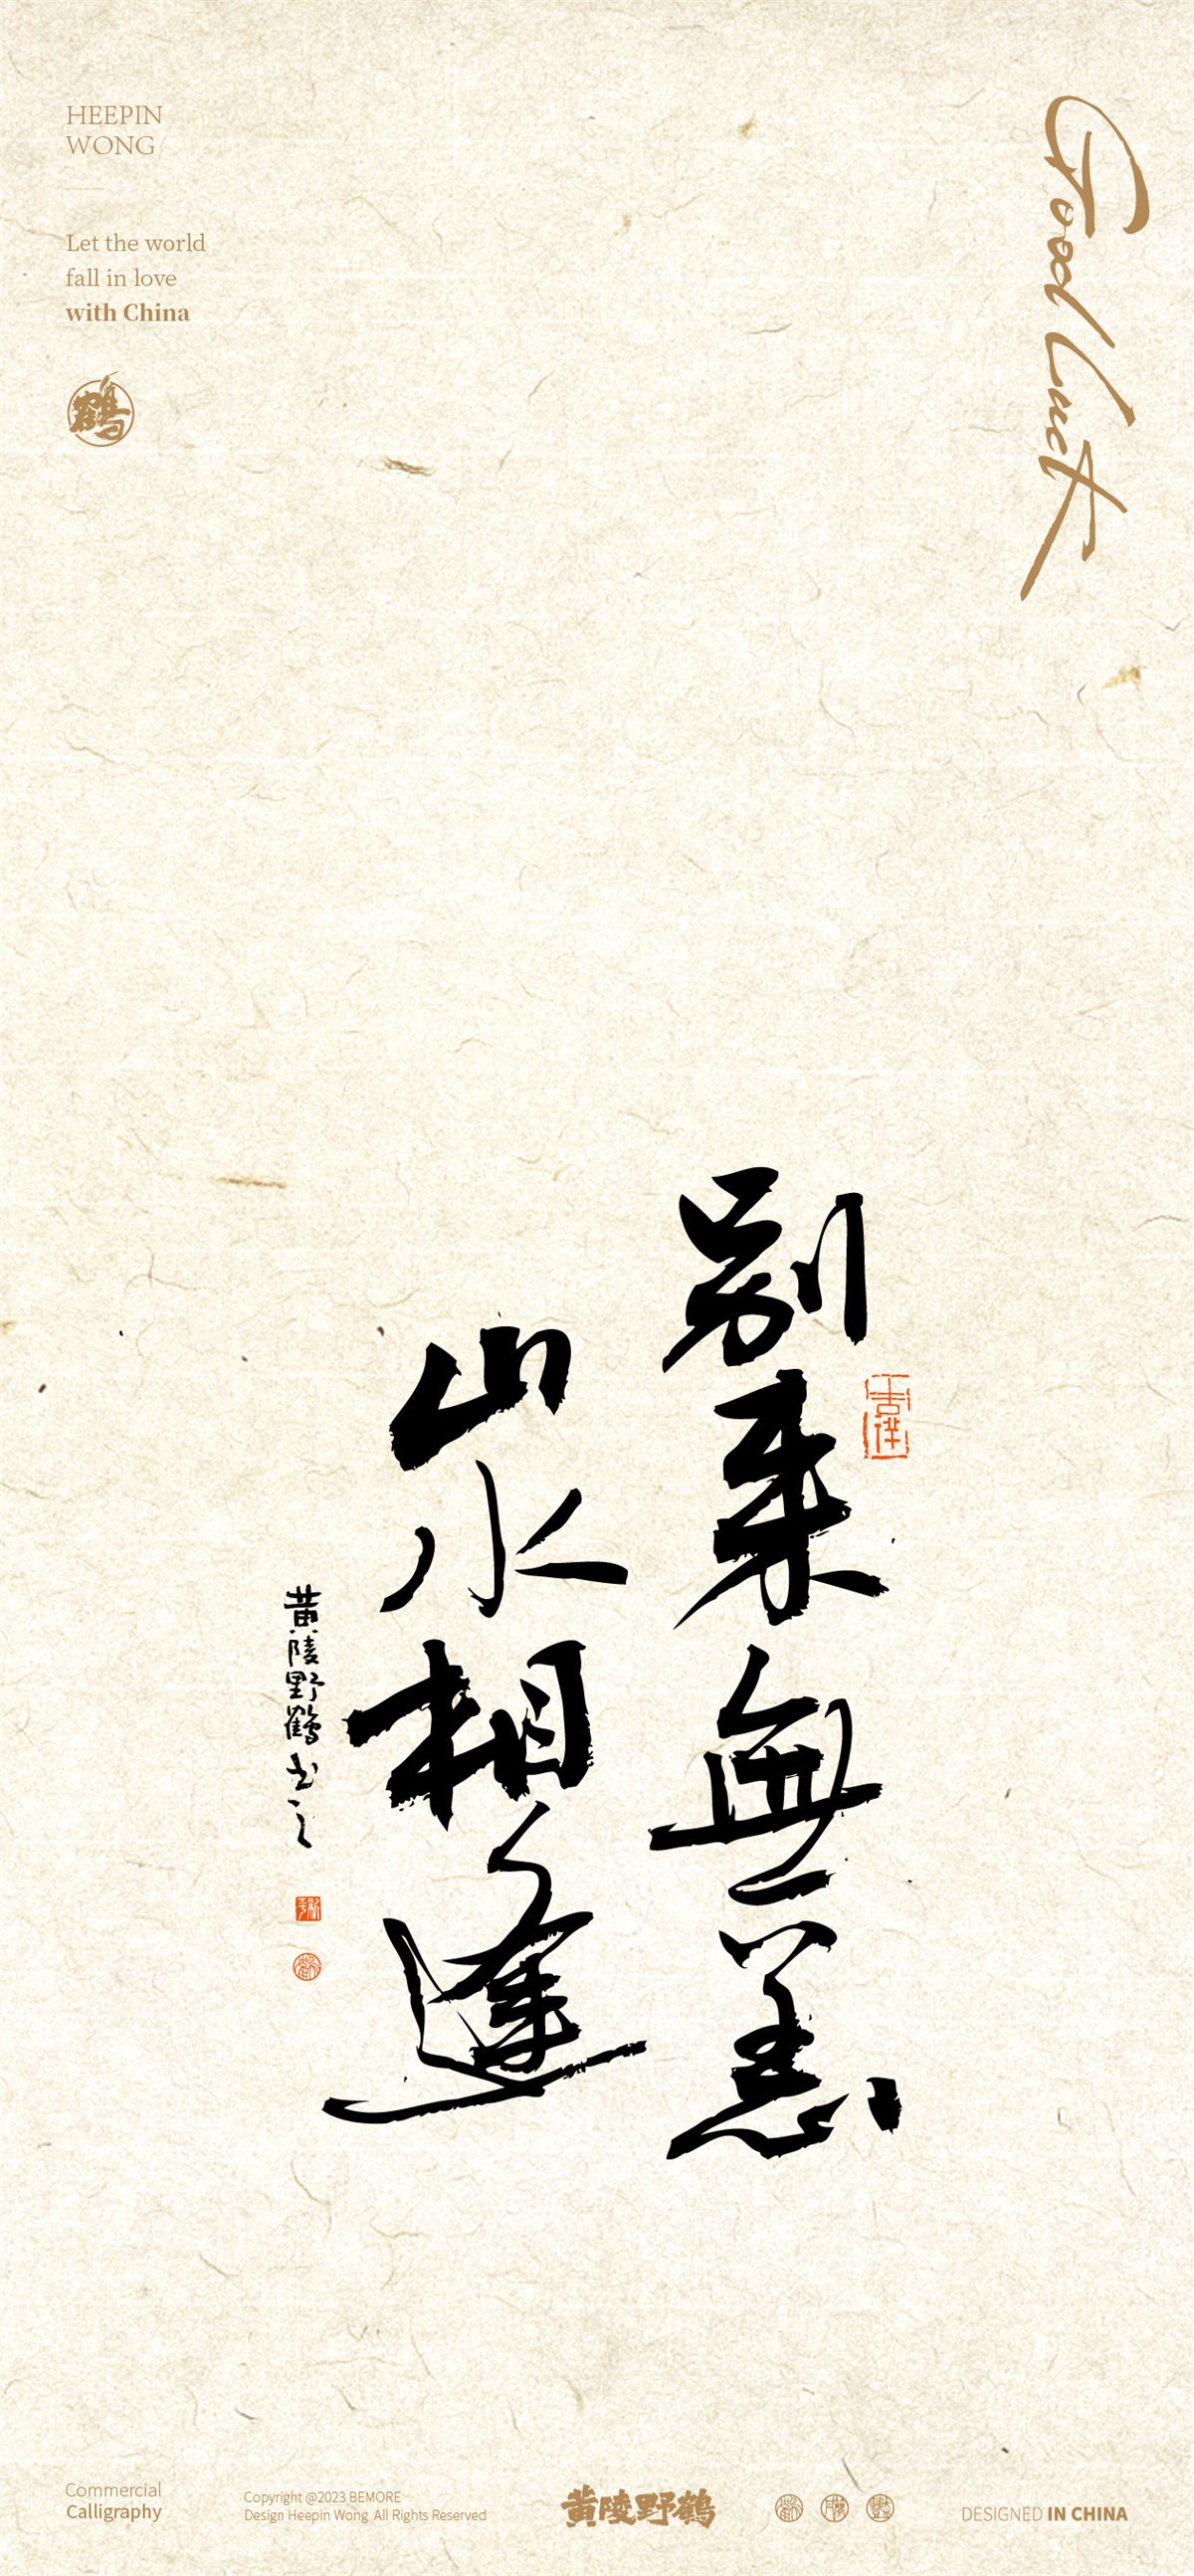 HEEPIN
WONG
Let the world
fall in love
with China
鶴
Good luck
別来無恙
山水相逢
黄陵野鶴书之
Commercial
Calligraphy
Copyright @2023 BEMORE
Design Heepin Wong All Rights Reserved
黄陵野鶴
DESIGNED IN CHINA